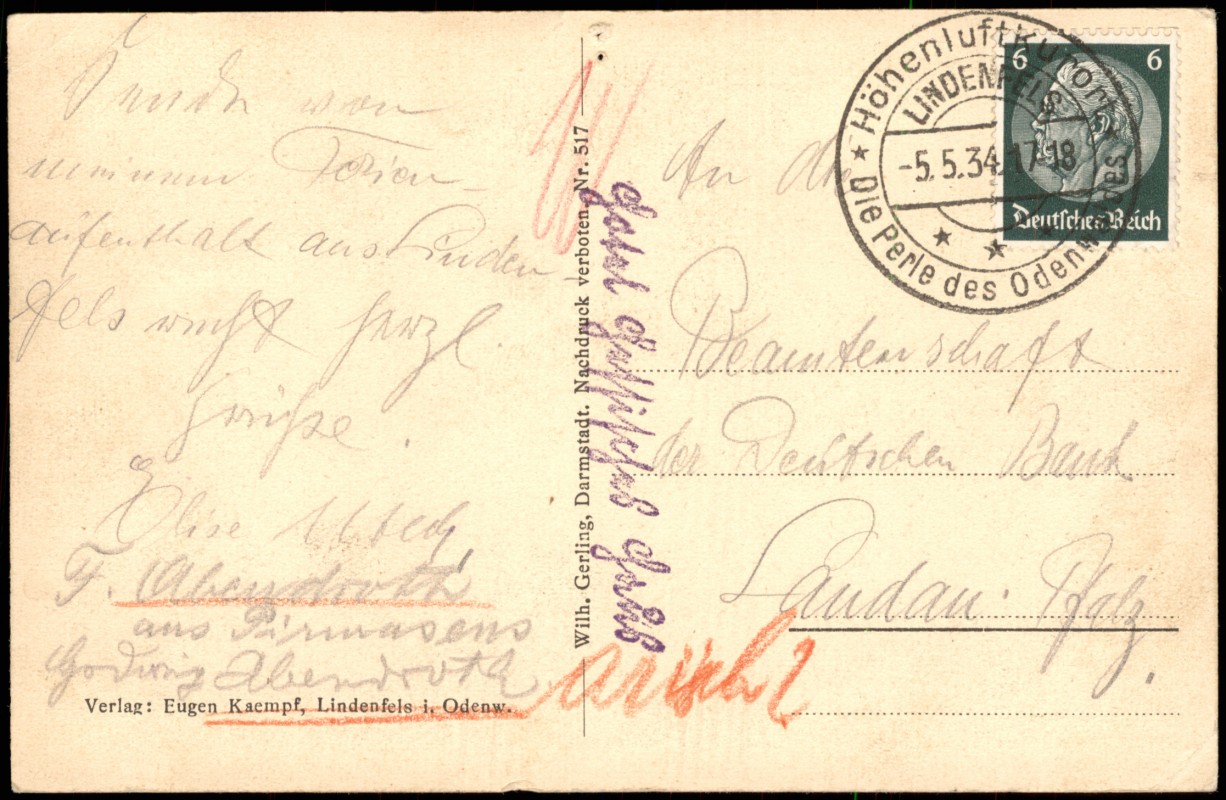 Sende von
meinem Ferien-
aufenthalt aus Linden-
fels recht herzl.
Grüße.
Elise
F. Abendroth
aus Pirmasens
Abendroth
Verlag: Eugen Kaempf, Lindenfels i. Odenw.
Wilh. Gerling, Darmstadt. Nachdruck verboten. Nr. 517
Höhenluftkurort
LINDENFELS
-5.5.34.17-18
Die Perle des Odenwaldes
6 6
Deutsches Reich
An die
Beamtenschaft
der Deutschen Bank
Landau. Pfalz.